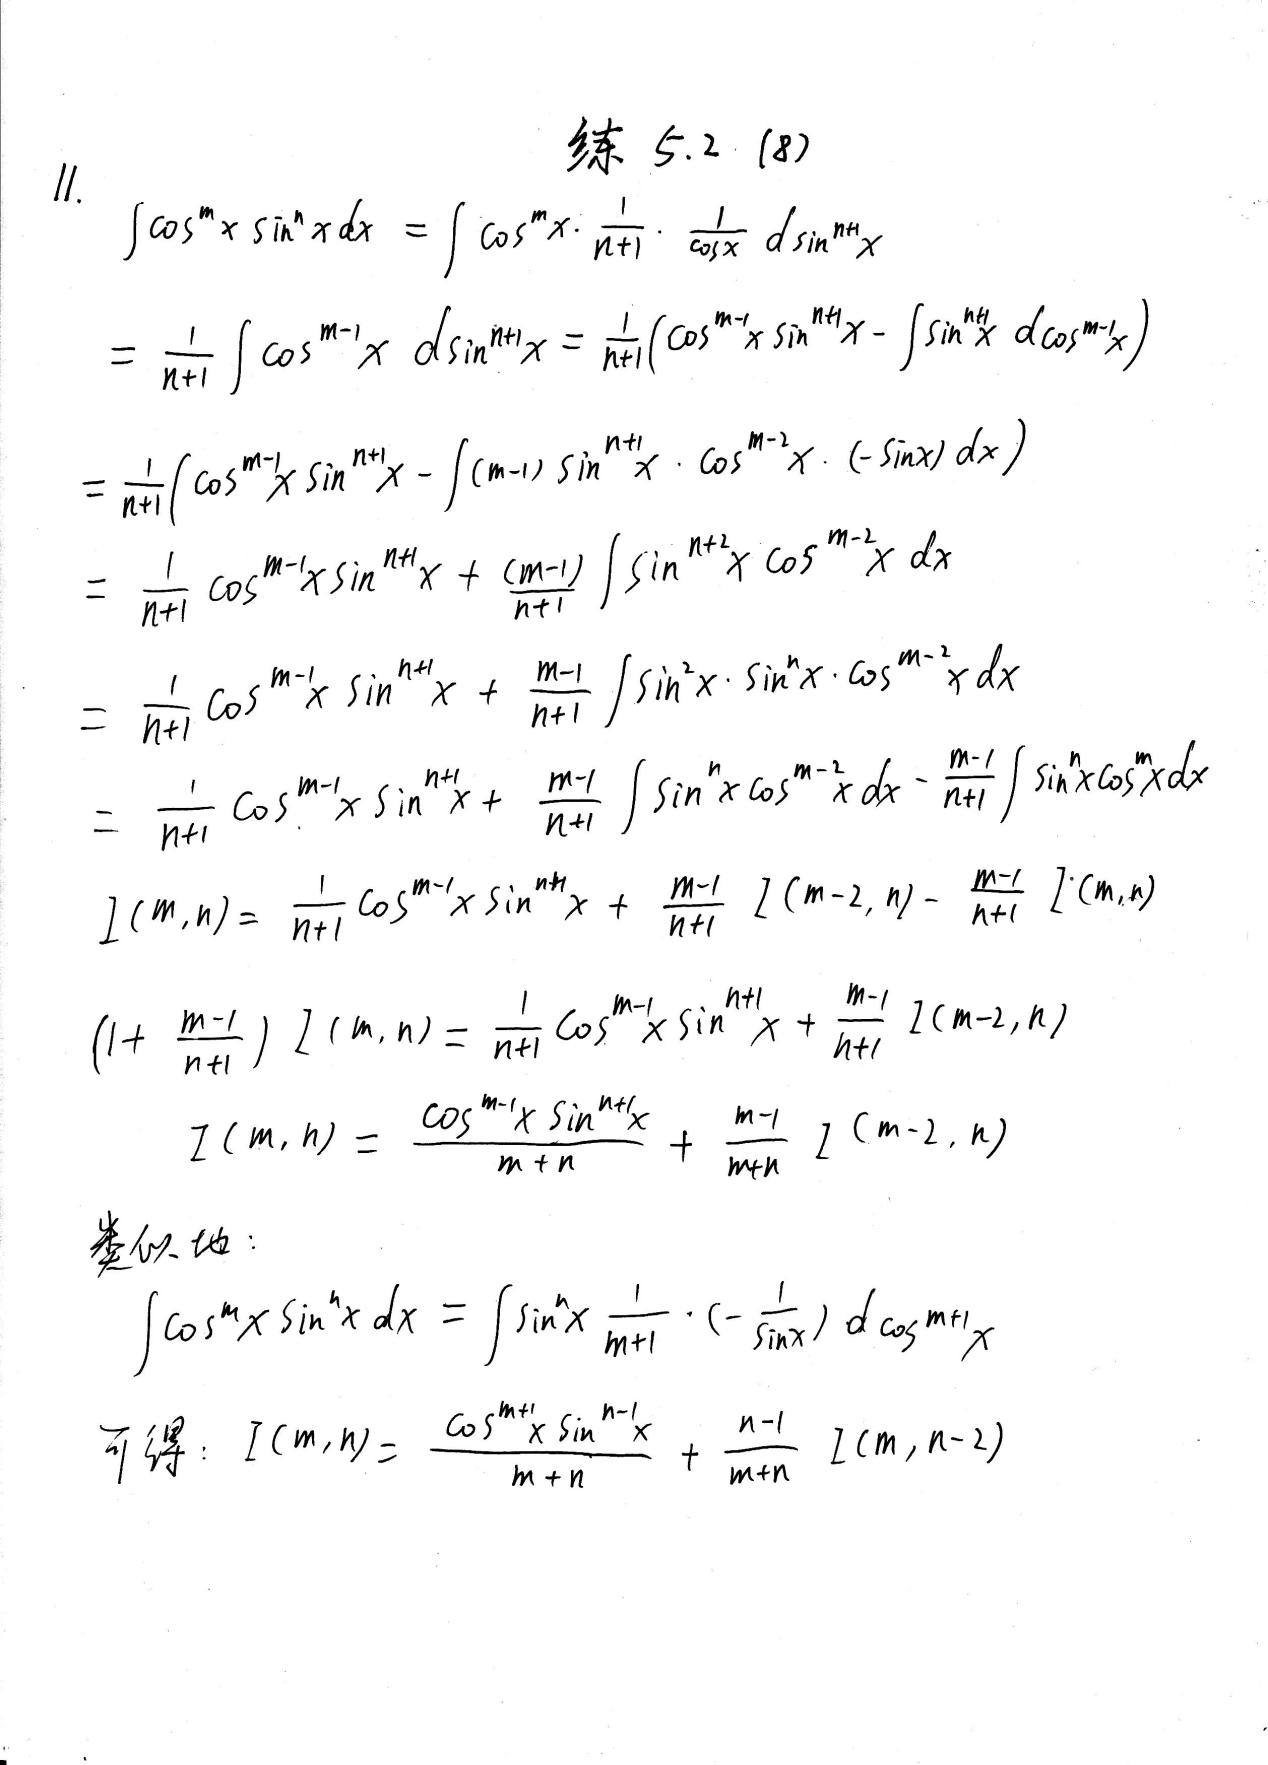 练 5.2 (8)
11.
∫cos^m x sin^n x dx = ∫ cos^m x · 1/(n+1) · 1/(cosx) d sin^(n+1) x
= 1/(n+1) ∫ cos^(m-1) x d sin^(n+1) x = 1/(n+1) (cos^(m-1) x sin^(n+1) x - ∫ sin^(n+1) x d cos^(m-1) x)
= 1/(n+1) (cos^(m-1) x sin^(n+1) x - ∫ (m-1) sin^(n+1) x · cos^(m-2) x · (-sinx) dx)
= 1/(n+1) cos^(m-1) x sin^(n+1) x + (m-1)/(n+1) ∫ sin^(n+2) x cos^(m-2) x dx
= 1/(n+1) cos^(m-1) x sin^(n+1) x + (m-1)/(n+1) ∫ sin²x · sin^n x · cos^(m-2) x dx
= 1/(n+1) cos^(m-1) x sin^(n+1) x + (m-1)/(n+1) ∫ sin^n x cos^(m-2) x dx - (m-1)/(n+1) ∫ sin^n x cos^m x dx
I(m,n) = 1/(n+1) cos^(m-1) x sin^(n+1) x + (m-1)/(n+1) I(m-2,n) - (m-1)/(n+1) I(m,n)
(1+ (m-1)/(n+1)) I(m,n) = 1/(n+1) cos^(m-1) x sin^(n+1) x + (m-1)/(n+1) I(m-2,n)
I(m,n) = (cos^(m-1) x sin^(n+1) x)/(m+n) + (m-1)/(m+n) I(m-2,n)
类似地:
∫cos^m x sin^n x dx = ∫ sin^n x 1/(m+1) · (- 1/(sinx)) d cos^(m+1) x
可得: I(m,n) = (cos^(m+1) x sin^(n-1) x)/(m+n) + (n-1)/(m+n) I(m,n-2)